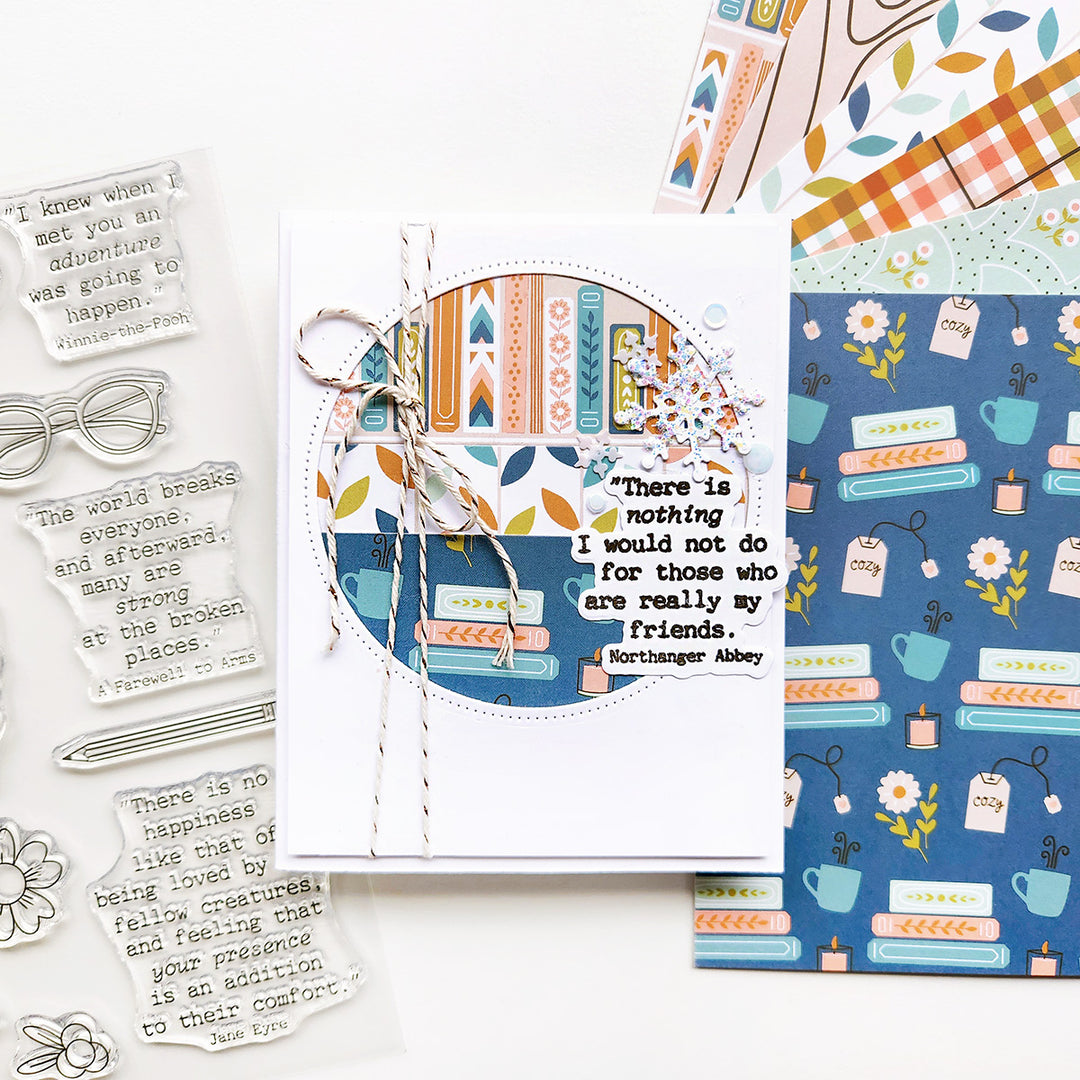 "I knew when I
met you an
adventure
was going to
happen."
Winnie-the-Pooh
"The world breaks
everyone,
and afterward,
many are
strong
at the broken
places."
A Farewell to Arms
"There is no
happiness
like that of
being loved by
fellow creatures,
and feeling that
your presence
is an addition
to their comfort."
Jane Eyre
"There is
nothing
I would not do
for those who
are really my
friends.
Northanger Abbey
cozy
cozy
cozy
cozy
cozy
cozy